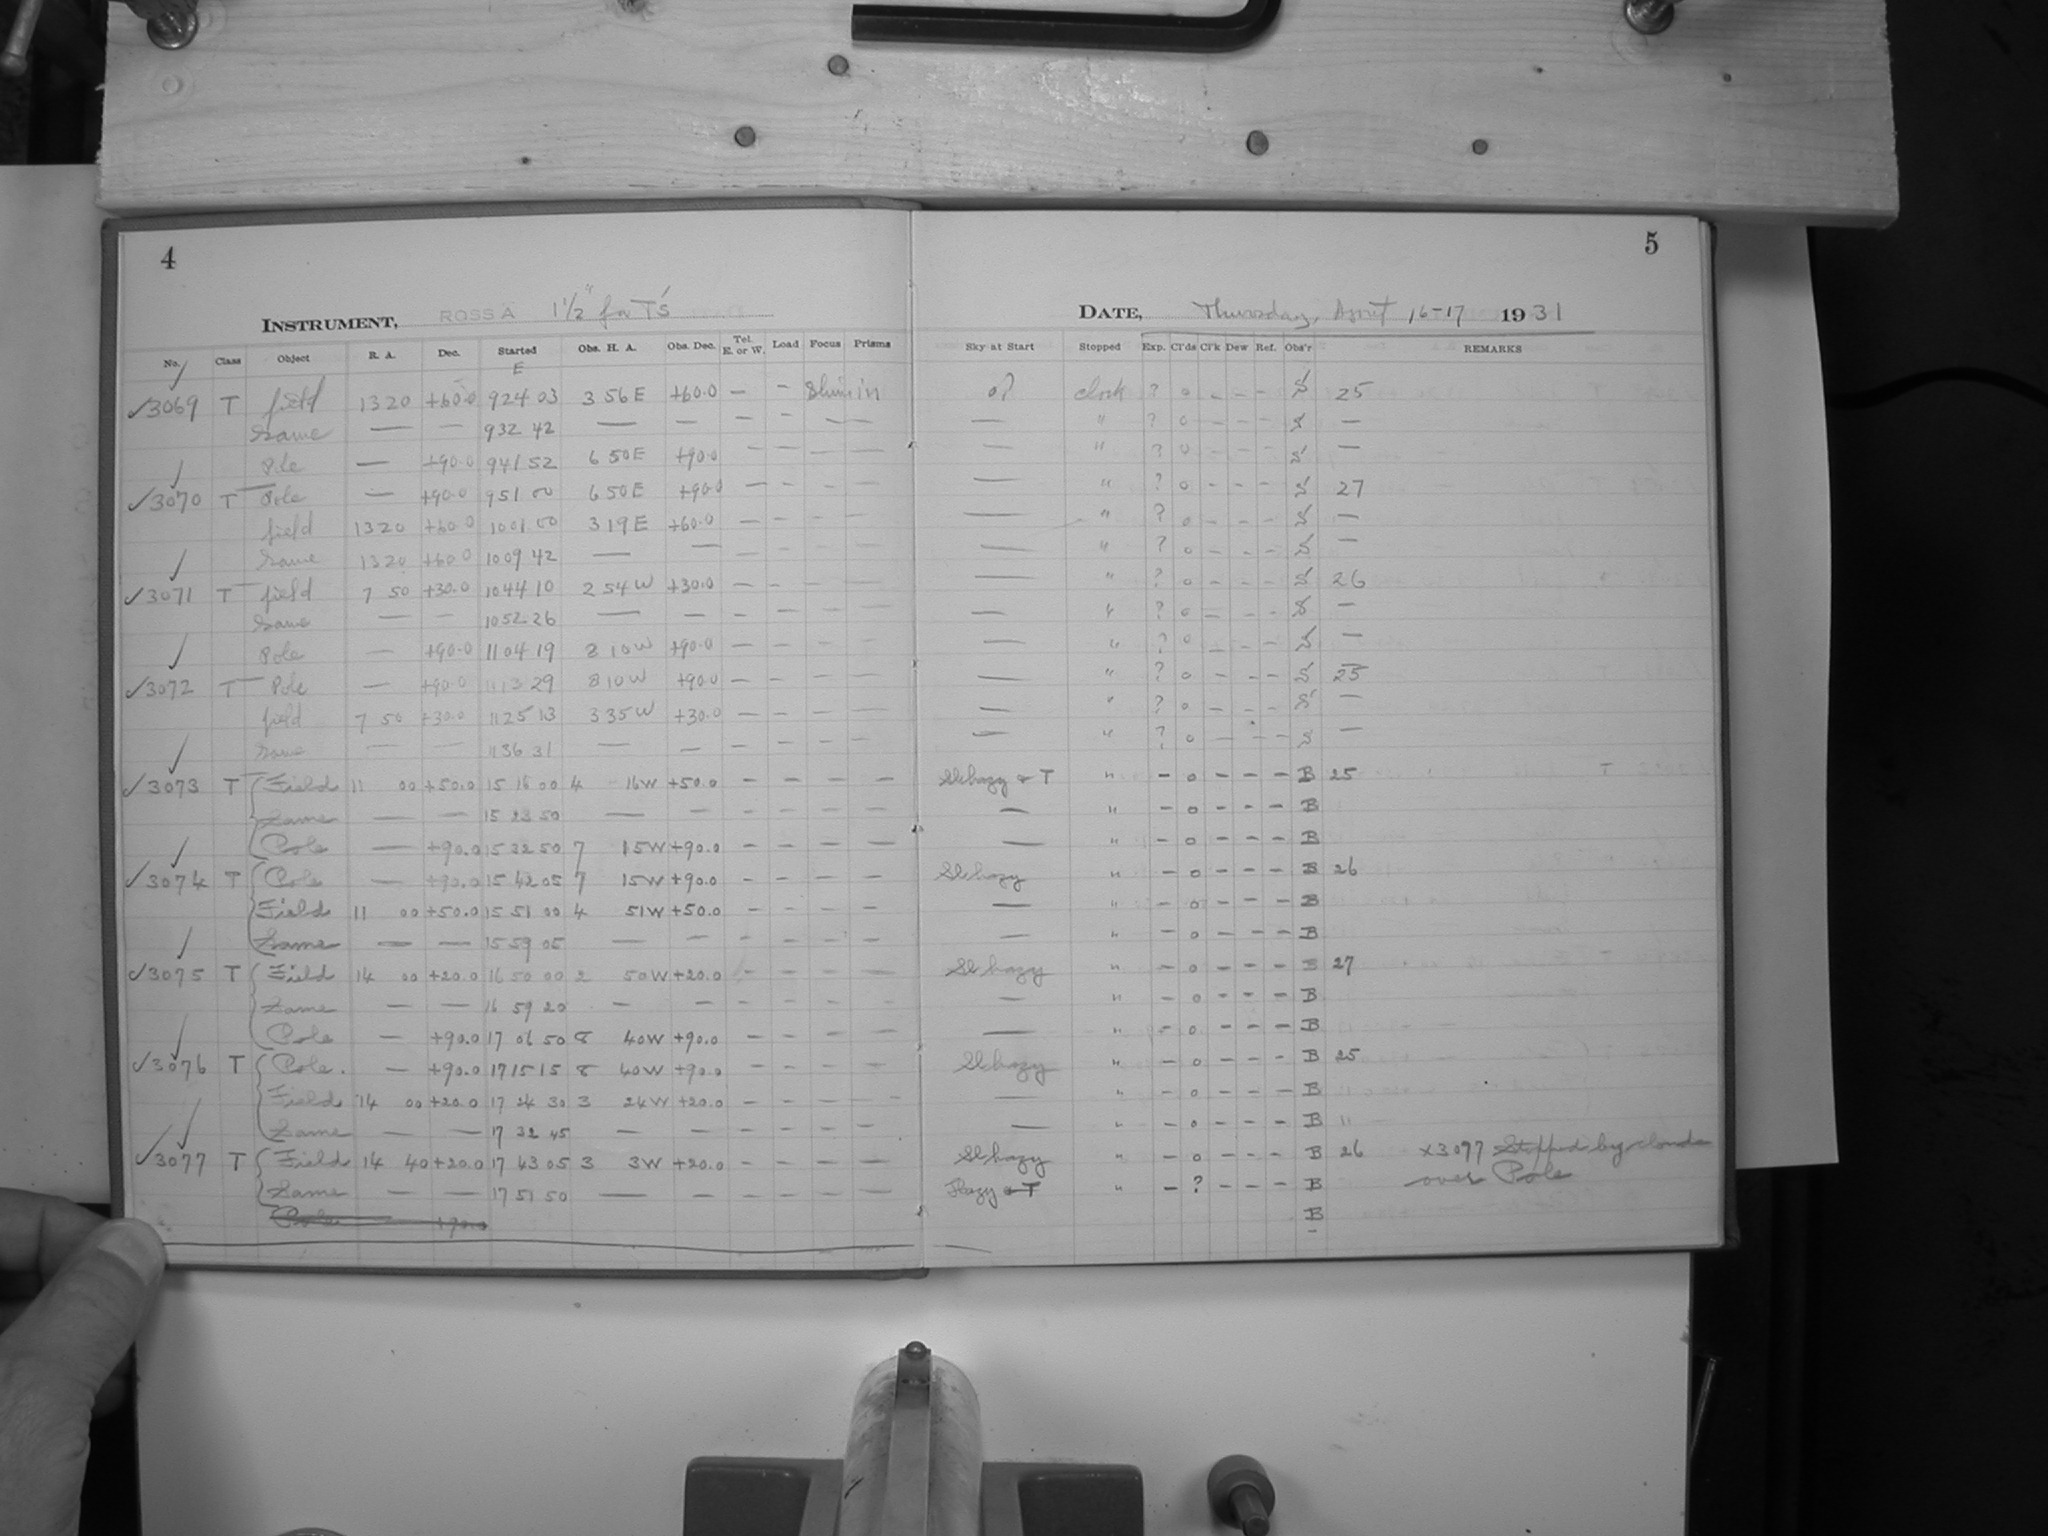 4
5
INSTRUMENT, ROSS A 1½" for T's
DATE, Thursday, April 16-17 1931
No. Class Object R. A. Dec. Started Obs. H. A. Obs. Dec. Tel. E. or W. Load Focus Prisms Sky at Start Stopped Exp. Cl'ds Cl'k Dew Ref. Obs'r REMARKS
E
✓3069 T field 13 20 +60.0 9 24 03 3 56 E +60.0 — - clock ? o - - - S 25
Same — — 9 32 42 — — — - - — — " ? o - - - S —
Pole — +90.0 9 41 52 6 50 E +90.0 — - - — — " ? o - - - S —
✓3070 T Pole — +90.0 9 51 00 6 50 E +90.0 — - - — — " ? o - - - S 27
field 13 20 +60.0 10 01 00 3 19 E +60.0 — - - - — " ? o - - - S —
Same 13 20 +60.0 10 09 42 — — — - - - — " ? o - - - S —
✓3071 T field 7 50 +30.0 10 44 10 2 54 W +30.0 — - - - — " ? o - - - S 26
Same — — 10 52 26 — — — - - - — " ? o - - - S —
Pole — +90.0 11 04 19 8 10 W +90.0 — - - - — " ? o - - - S —
✓3072 T Pole — +90.0 11 13 29 8 10 W +90.0 — - - - — " ? o - - - S 25
field 7 50 +30.0 11 25 13 3 35 W +30.0 — - - - — " ? o - - - S —
Same — — 11 36 31 — — — - - - — " ? o - - - S —
✓3073 T Field 11 00 +50.0 15 16 00 4 16 W +50.0 - - - - Sl hazy & T " - o - - - B 25
Same — — 15 23 50 — — - - - - — " - o - - - B
Pole — +90.0 15 32 50 7 15 W +90.0 - - - - — " - o - - - B
✓3074 T Pole — +90.0 15 42 05 7 15 W +90.0 - - - - Sl hazy " - o - - - B 26
Field 11 00 +50.0 15 51 00 4 51 W +50.0 - - - - — " - o - - - B
Same — — 15 59 05 — — - - - - — " - o - - - B
✓3075 T Field 14 00 +20.0 16 50 00 2 50 W +20.0 - - - - Sl hazy " - o - - - B 27
Same — — 16 59 20 — — - - - - — " - o - - - B
Pole — +90.0 17 06 50 8 40 W +90.0 - - - - — " - o - - - B
✓3076 T Pole. — +90.0 17 15 15 8 40 W +90.0 - - - - Sl hazy " - o - - - B 25
Field 14 00 +20.0 17 24 30 3 24 W +20.0 - - - - — " - o - - - B
Same — — 17 32 45 — — - - - - — " - o - - - B
✓3077 T Field 14 40 +20.0 17 43 05 3 3 W +20.0 - - - - Sl hazy " - o - - - B 26 x3077 Stopped by clouds
Same — — 17 51 50 — — - - - - Hazy & T " - ? - - - B over Pole
Pole +90.0 B